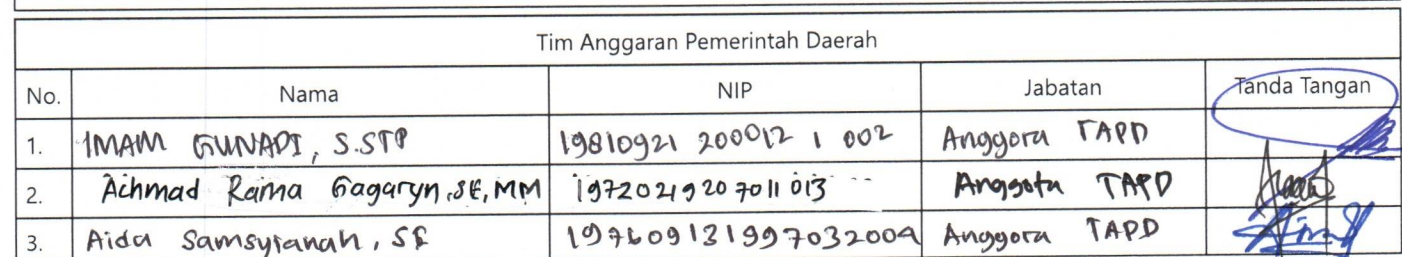 Tim Anggaran Pemerintah Daerah
No. Nama NIP Jabatan Tanda Tangan
1. IMAM GUNADI, S.STP 19810921 200012 1 002 Anggota TAPD
2. Achmad Rama Gagaryn, SE, MM 19720219 20 7011 013 Anggota TAPD
3. Aida Samsyianah, SE 197609131997032009 Anggota TAPD